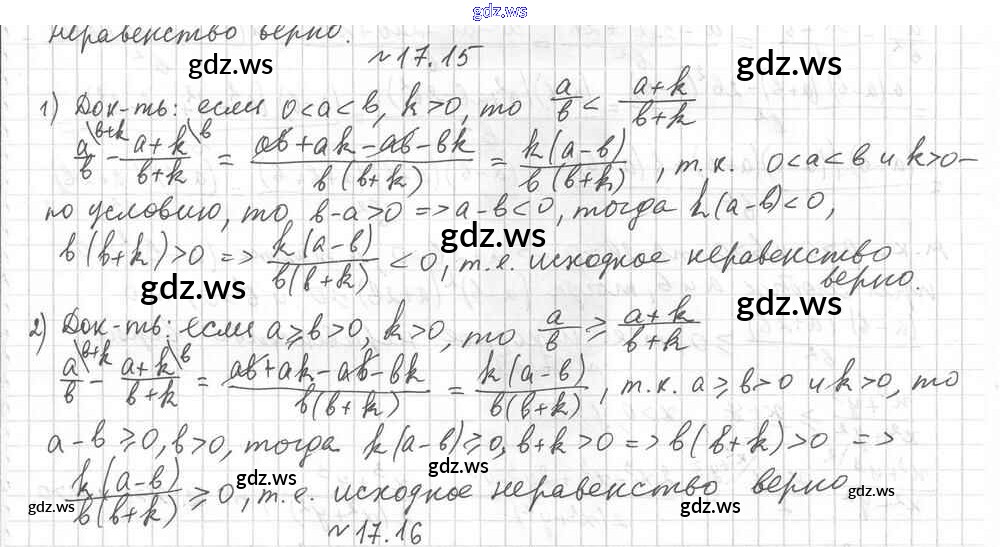 gdz.ws
неравенство верно.
№17.15
gdz.ws gdz.ws
1) Док-ть: если 0<a<b, k>0, то a/b < (a+k)/(b+k)
a/b \b+k - (a+k)/(b+k) \b = (ab+ak-ab-bk)/(b(b+k)) = k(a-b)/(b(b+k)), т.к. 0<a<b и k>0-
по условию, то b-a>0 => a-b<0, тогда k(a-b)<0,
gdz.ws
b(b+k)>0 => k(a-b)/(b(b+k)) < 0, т.е. исходное неравенство
верно.
gdz.ws gdz.ws
2) Док-ть: если a⩾b>0, k>0, то a/b ⩾ (a+k)/(b+k)
a/b \b+k - (a+k)/(b+k) \b = (ab+ak-ab-bk)/(b(b+k)) = k(a-b)/(b(b+k)), т.к. a⩾b>0 и k>0, то
a-b⩾0, b>0, тогда k(a-b)⩾0, b+k>0 => b(b+k)>0 =>
gdz.ws gdz.ws
k(a-b)/(b(b+k)) ⩾ 0, т.е. исходное неравенство верно
gdz.ws gdz.ws gdz.ws gdz.ws
№17.16